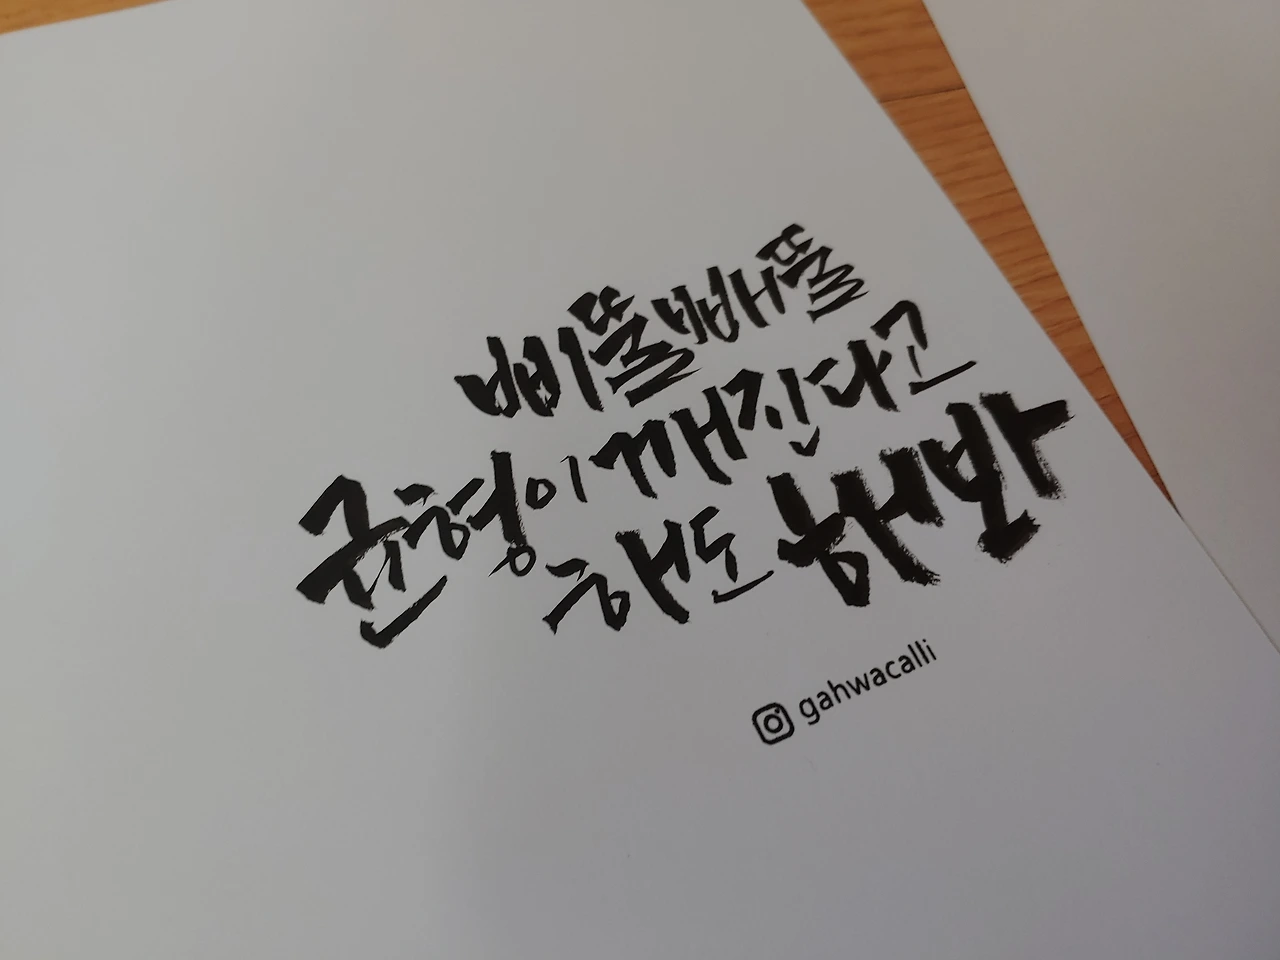 삐뚤빼뚤
균형이 깨진다고
해도 해봐
gahwacalli